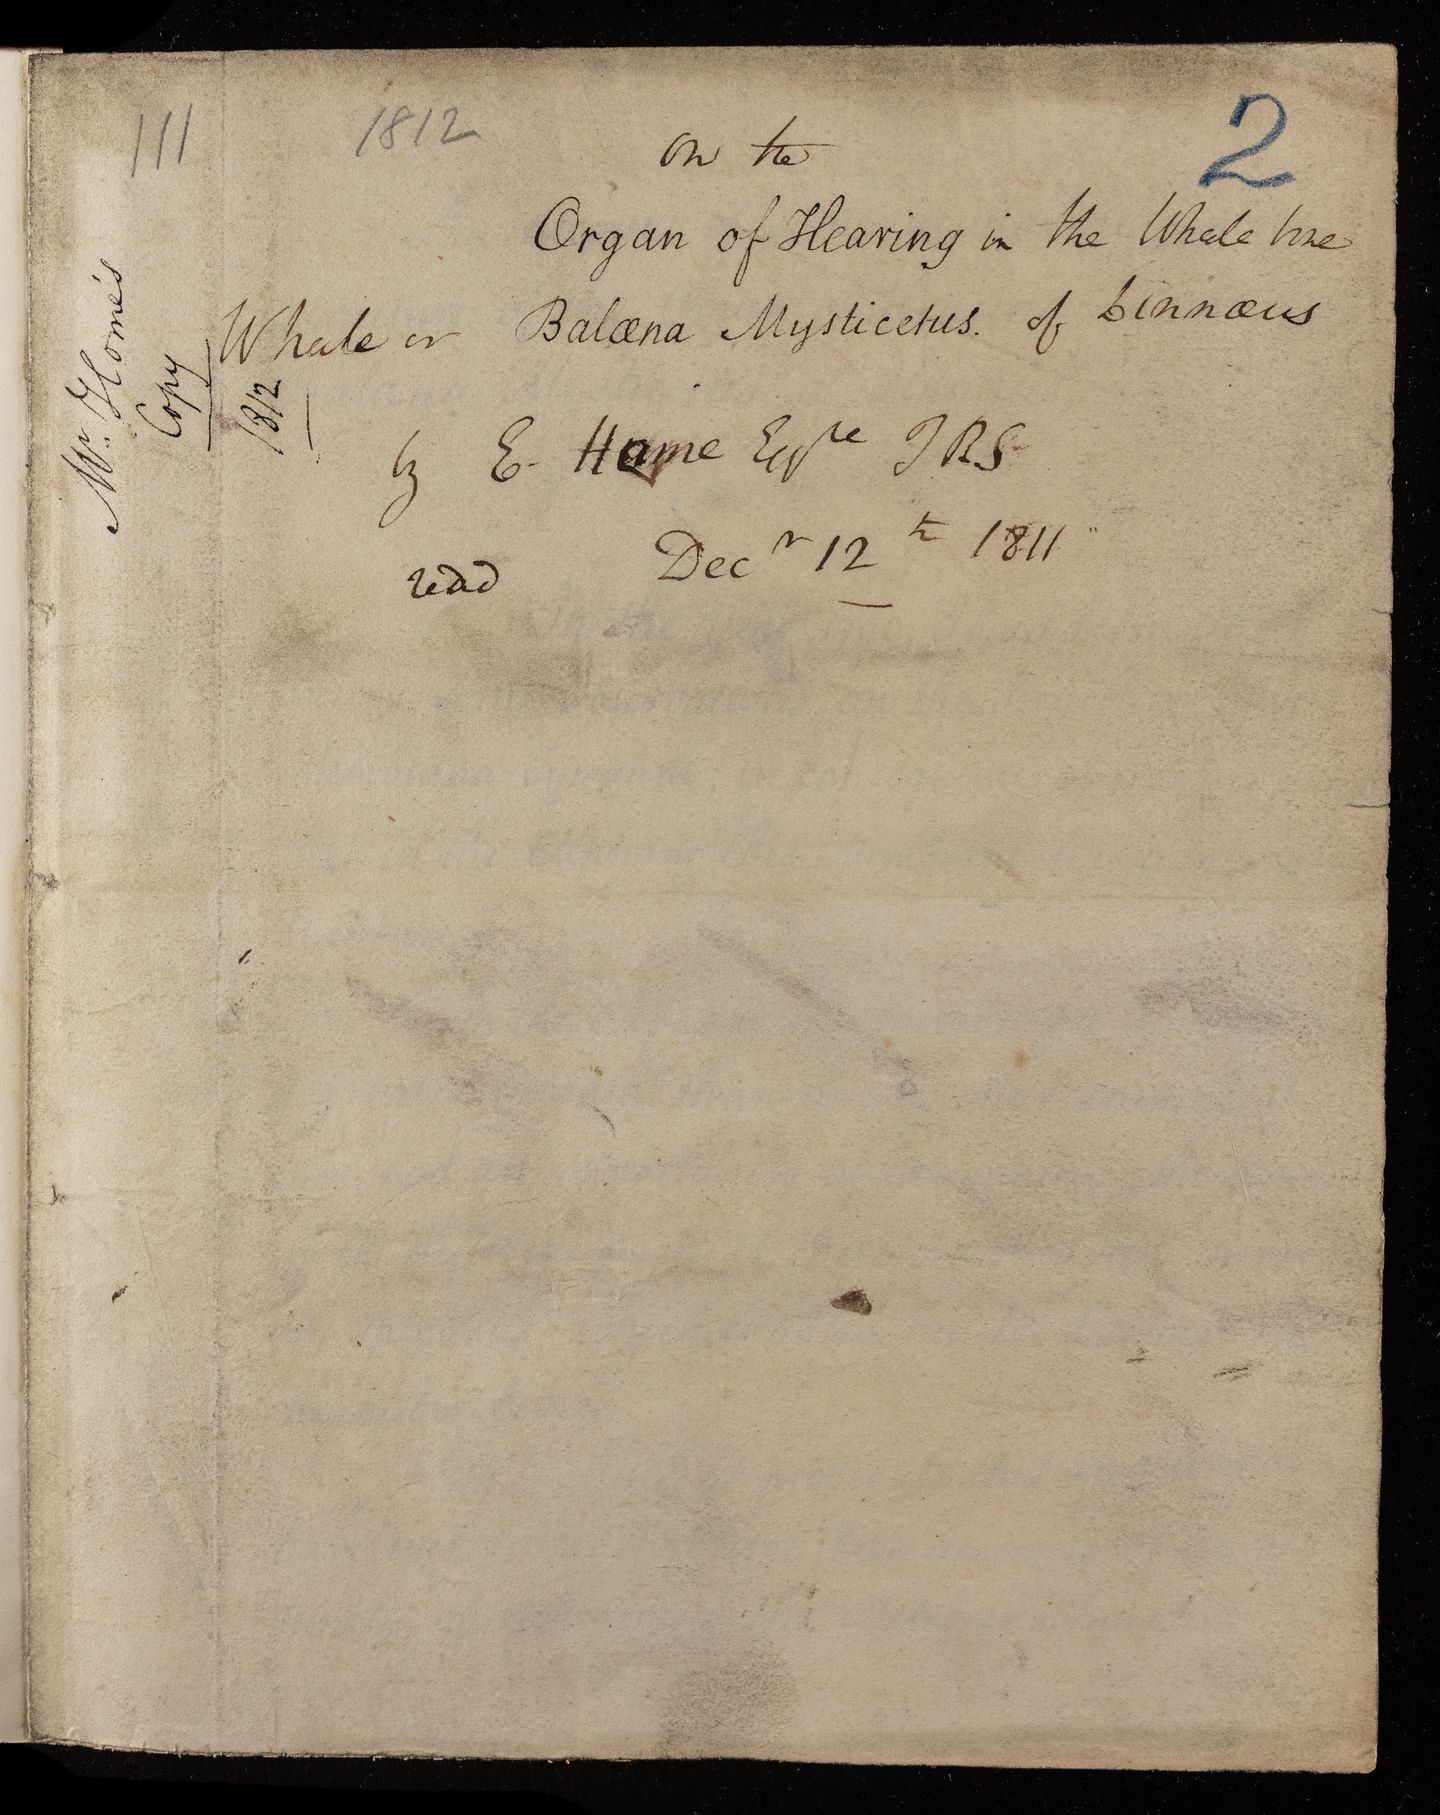 111
1812
2
on the
Organ of Hearing in the Whale bone
Whale or Balæna Mysticetus. of Linnæus
by E. Home Esqre FRS
read Decr 12th 1811
Mr. Home's
Copy
1812